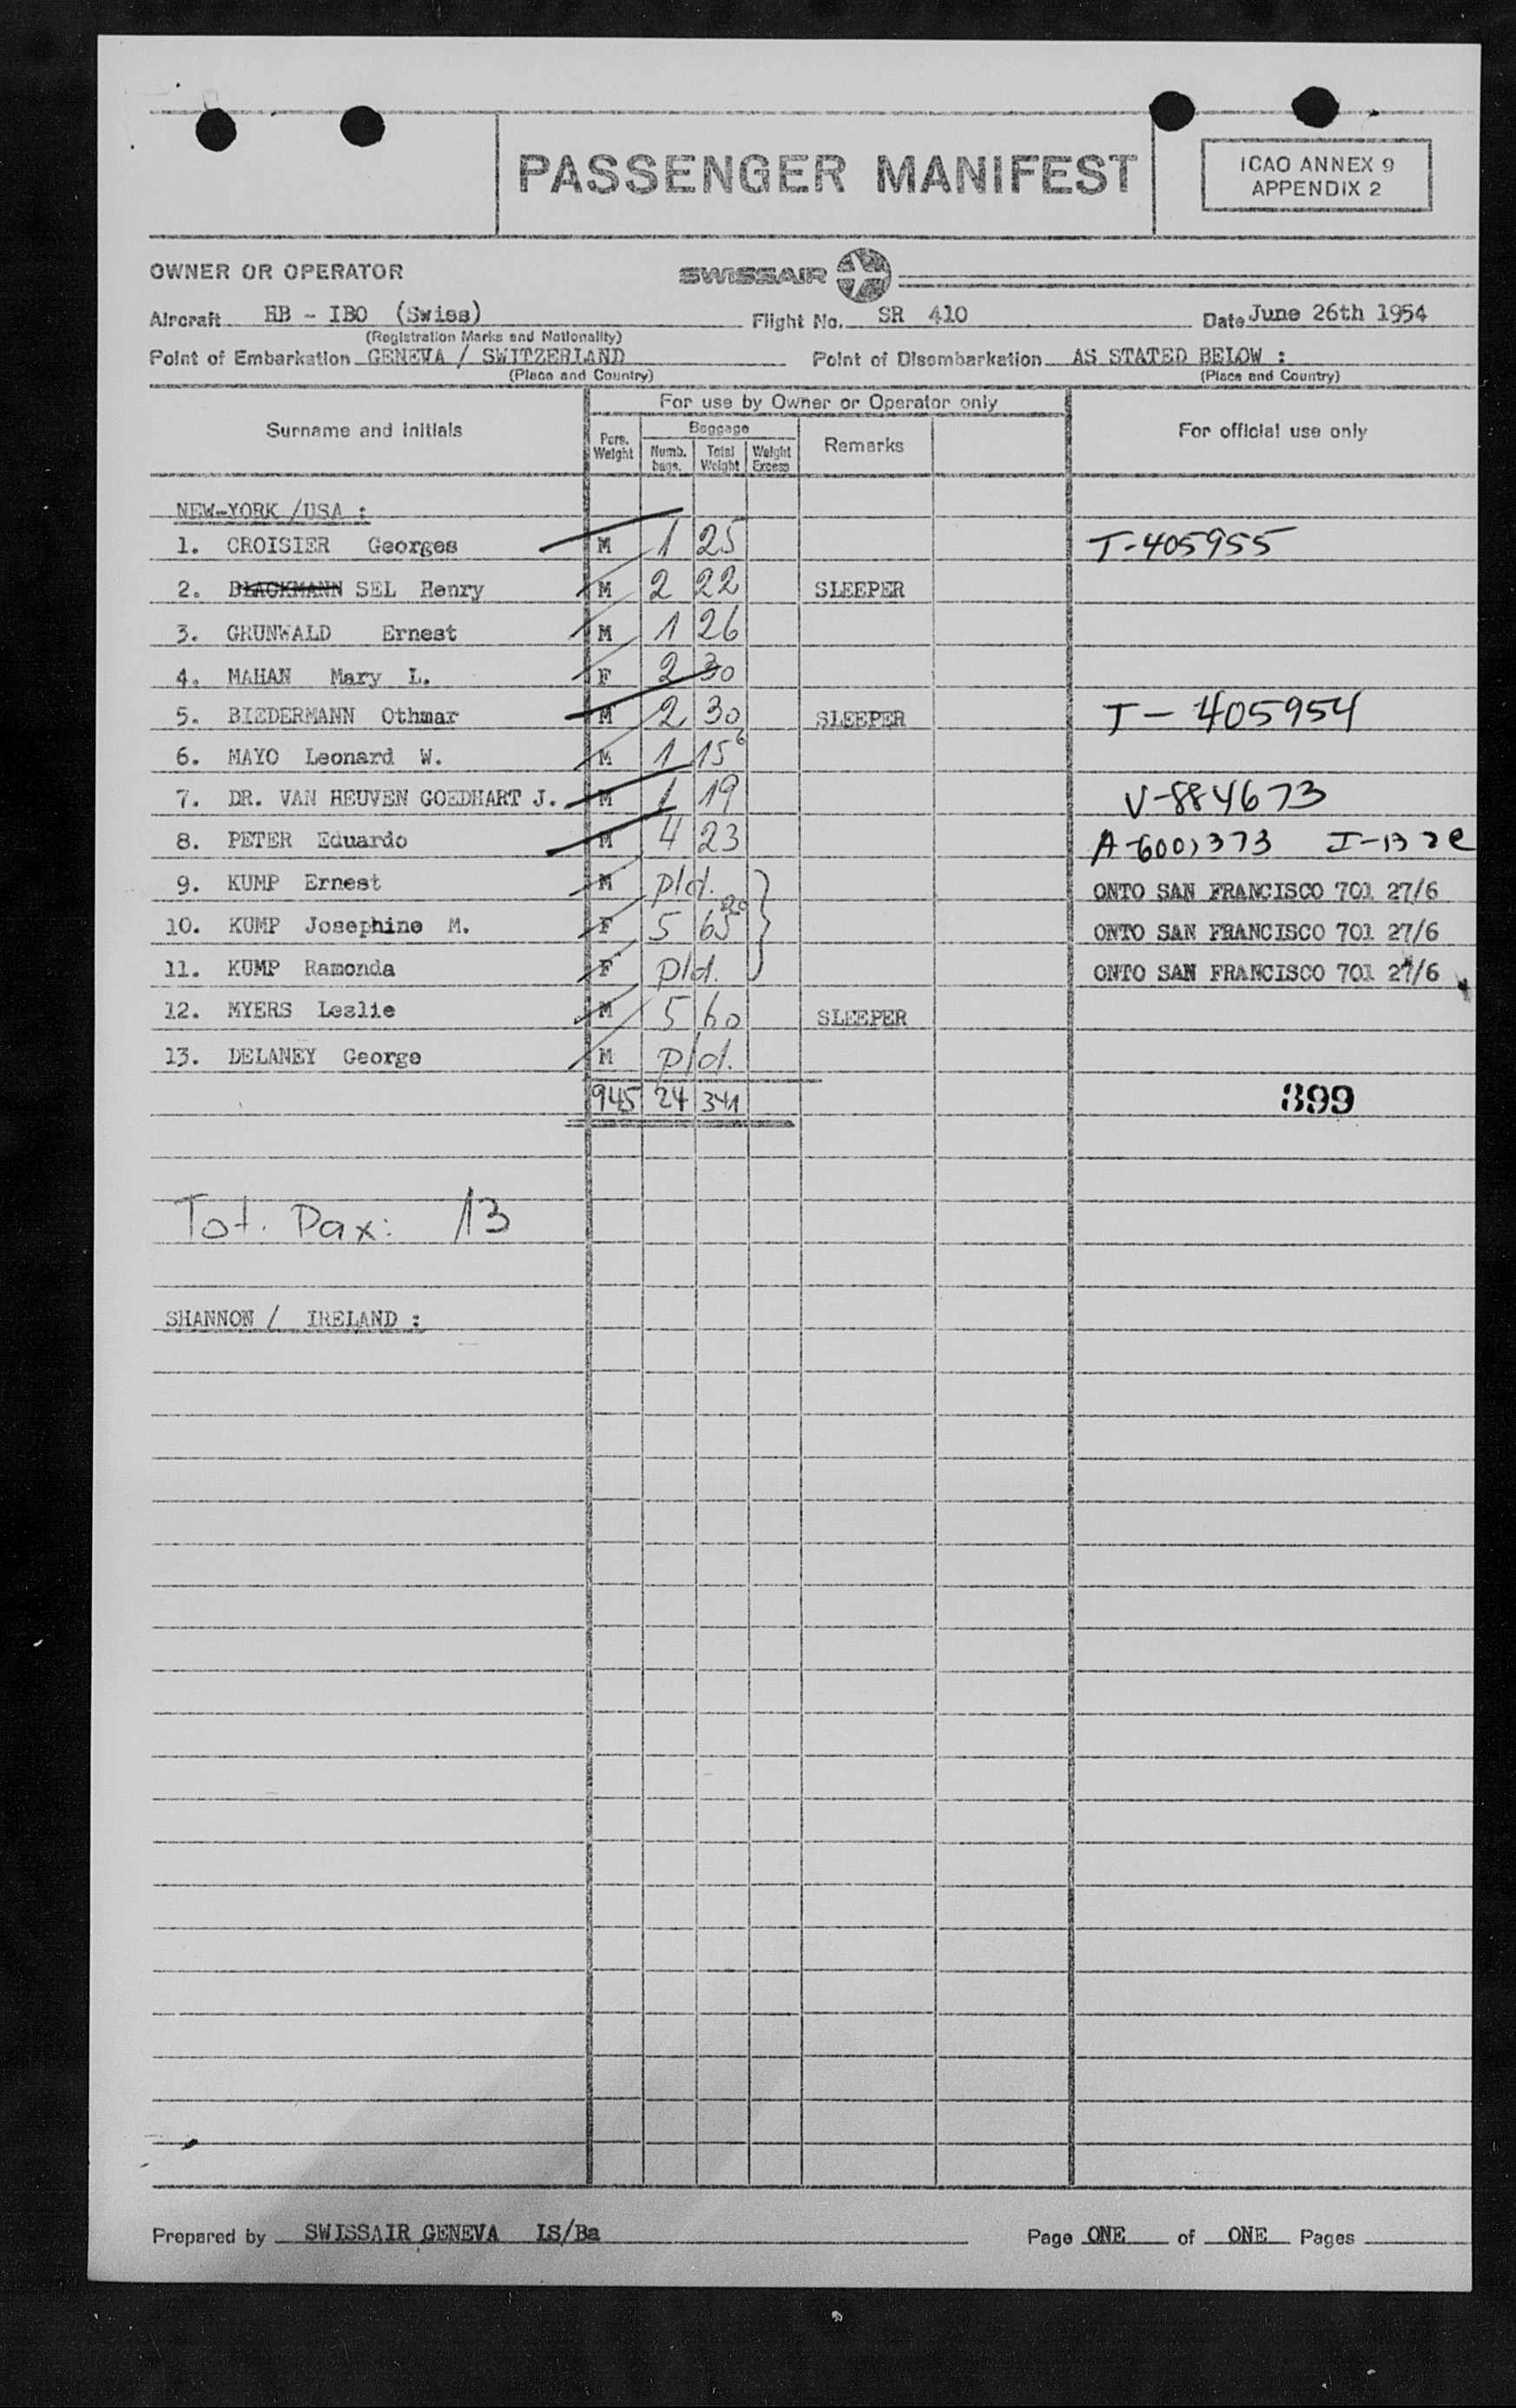 PASSENGER MANIFEST
ICAO ANNEX 9
APPENDIX 2
OWNER OR OPERATOR SWISSAIR
Aircraft HB - IBO (Swiss) Flight No. SR 410 Date June 26th 1954
(Registration Marks and Nationality)
Point of Embarkation GENEVA / SWITZERLAND Point of Disembarkation AS STATED BELOW :
(Place and Country) (Place and Country)
For use by Owner or Operator only
Surname and initials Pers. Weight Baggage Numb. bags. Total Weight Weight Excess Remarks For official use only
NEW-YORK /USA :
1. CROISIER Georges M 1 25 T-405955
2. BLACKMANN SEL Henry M 2 22 SLEEPER
3. GRUNWALD Ernest M 1 26
4. MAHAN Mary L. F 2 30
5. BIEDERMANN Othmar M 2 30 SLEEPER T-405954
6. MAYO Leonard W. M 1 15 6
7. DR. VAN HEUVEN GOEDHART J. M 1 19 V-884673
8. PETER Eduardo M 4 23
9. KUMP Ernest M pld. ONTO SAN FRANCISCO 701 27/6
10. KUMP Josephine M. F 5 65 20 ONTO SAN FRANCISCO 701 27/6
11. KUMP Ramonda F pld. ONTO SAN FRANCISCO 701 27/6
12. MYERS Leslie M 5 60 SLEEPER
13. DELANEY George M pld.
945 24 341 899
Tot. Pax: 13
SHANNON / IRELAND :
Prepared by SWISSAIR GENEVA IS/Ba Page ONE of ONE Pages